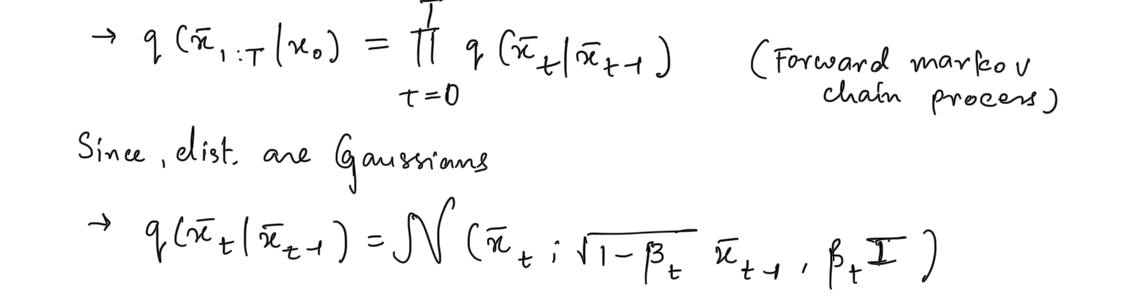 → q(x̄₁:T|x₀) = ∏ᵀₜ₌₀ q(x̄ₜ|x̄ₜ₋₁) (Forward markov
chain process)
Since, dist. are Gaussians
→ q(x̄ₜ|x̄ₜ₋₁) = 𝒩(x̄ₜ; √(1-βₜ) x̄ₜ₋₁, βₜI)